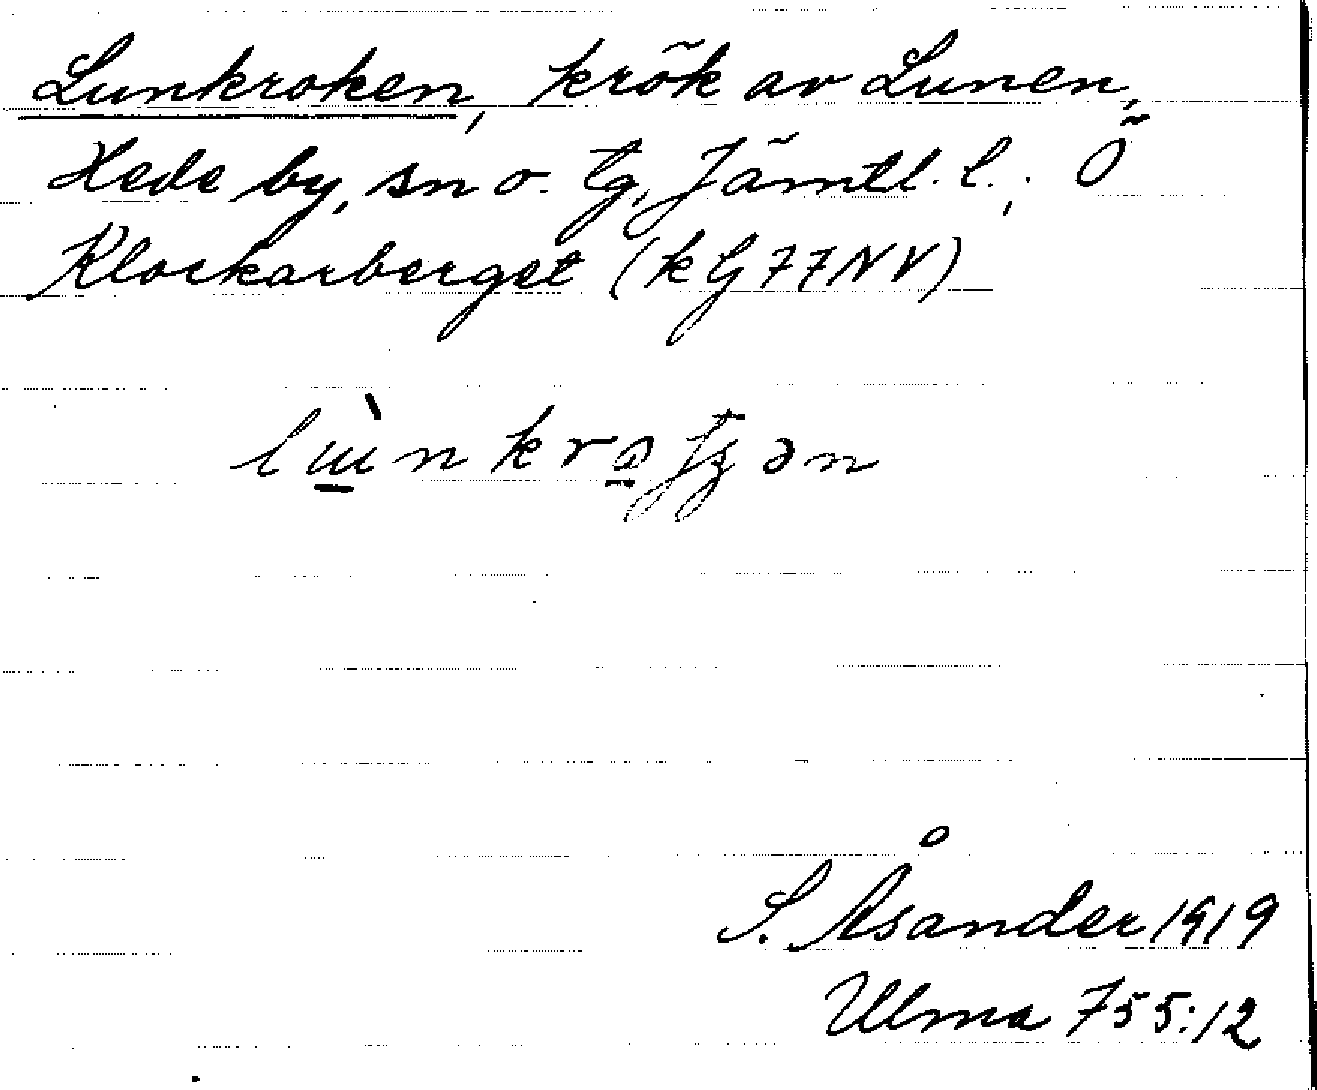 Lunkroken, krök av Lunen,
Hede by, sn o. tg, Jämtl. l.; Ö
Klockarberget (kG77NV)
S. Åsander 1919
Ulma 755:12